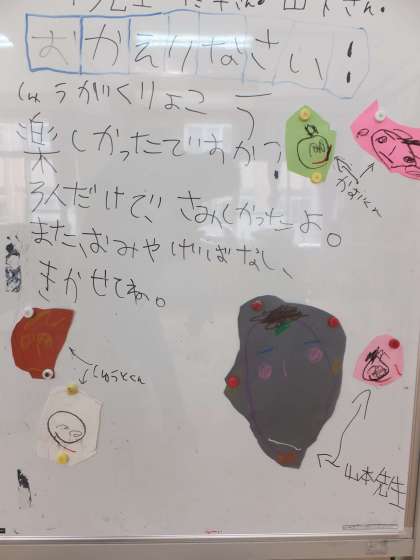 先生 さん。 さん。
おかえりなさい!
しゅうがくりょこう
楽しかったですか?
3人だけで、さみしかったよ。
また、おみやげばなし、
きかせてね。
しゅうとくん
山本先生